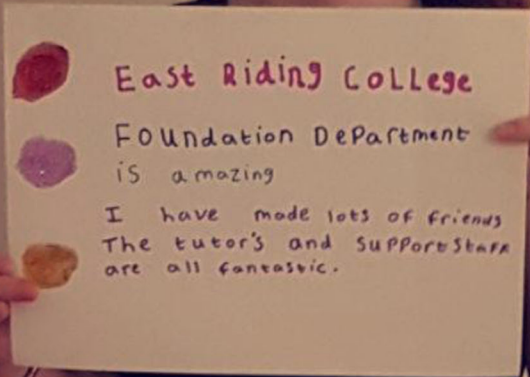 East Riding College
Foundation Department
is amazing
I have made lots of friends
The tutor's and support staff
are all fantastic.